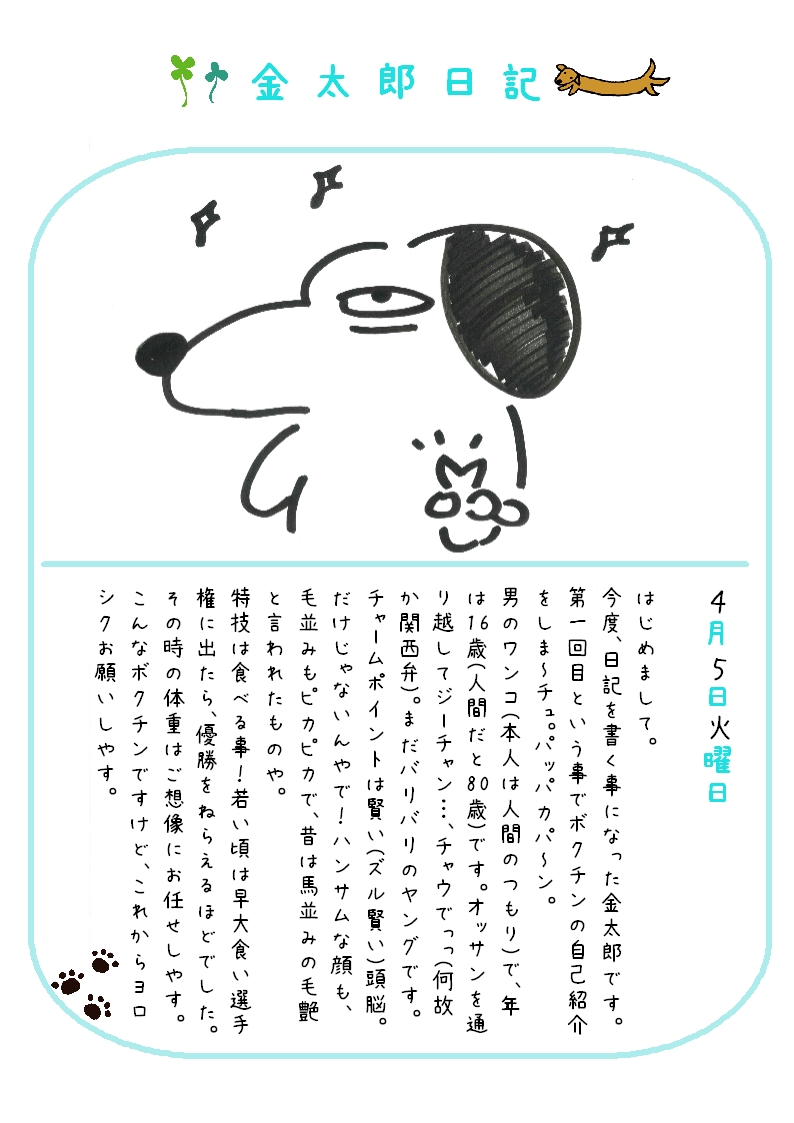 金太郎日記
4月5日火曜日
はじめまして。
今度、日記を書く事になった金太郎です。
第一回目という事でボクチンの自己紹介
をしま～チュ。パッパカパ～ン。
男のワンコ(本人は人間のつもり)で、年
は16歳(人間だと80歳)です。オッサンを通
り越してジーチャン…、チャウでっっ(何故
か関西弁)。まだバリバリのヤングです。
チャームポイントは賢い(ズル賢い)頭脳。
だけじゃないんやで！ハンサムな顔も、
毛並みもピカピカで、昔は馬並みの毛艶
と言われたものや。
特技は食べる事！若い頃は早大食い選手
権に出たら、優勝をねらえるほどでした。
その時の体重はご想像にお任せしやす。
こんなボクチンですけど、これからヨロ
シクお願いしやす。